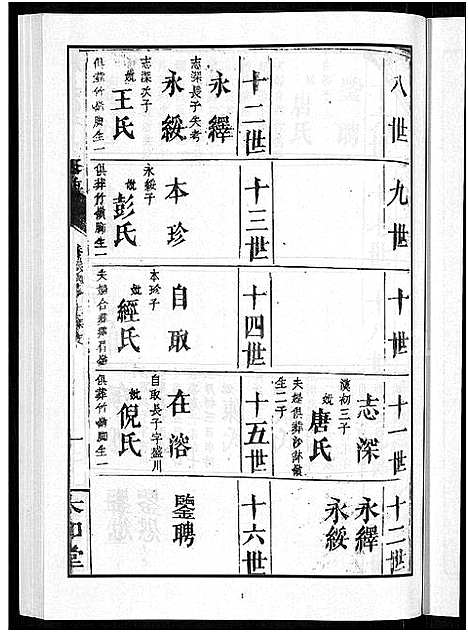 八世
九世
十世
十一世
志深
漢初三子
妣唐氏
生二子
十二世
永繹
永綏
十二世
永繹
志深長子失考
永綏
志深次子
妣王氏
俱葬竹嶺胸生一
十三世
本珍
永綏子
妣彭氏
俱葬竹嶺胸生一
十四世
自取
本珍子
妣經氏
十五世
在溶
自取長子字盛川
妣倪氏
俱葬竹嶺胸生一
十六世
鑒聘
太和堂